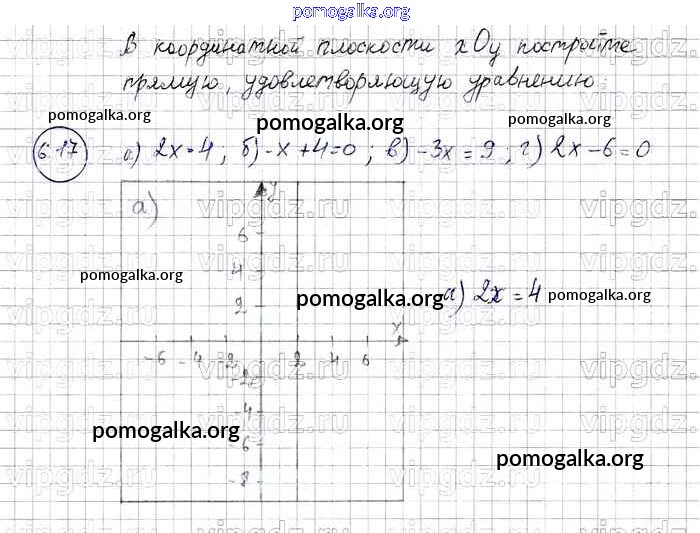 pomogalka.org
В координатной плоскости xOy постройте
прямую, удовлетворяющую уравнению:
pomogalka.org
pomogalka.org
pomogalka.org
6.17 а) 2x=4; б) -x+4=0; в) -3x=9; г) 2x-6=0
vipgdz.ru vipgdz.ru vipgdz.ru vipgdz.ru
а) y
6
pomogalka.org
4
pomogalka.org
а) 2x=4
pomogalka.org
2
x
-6 -4 -2 2 4 6
-2
-4
pomogalka.org
-6
pomogalka.org
-8